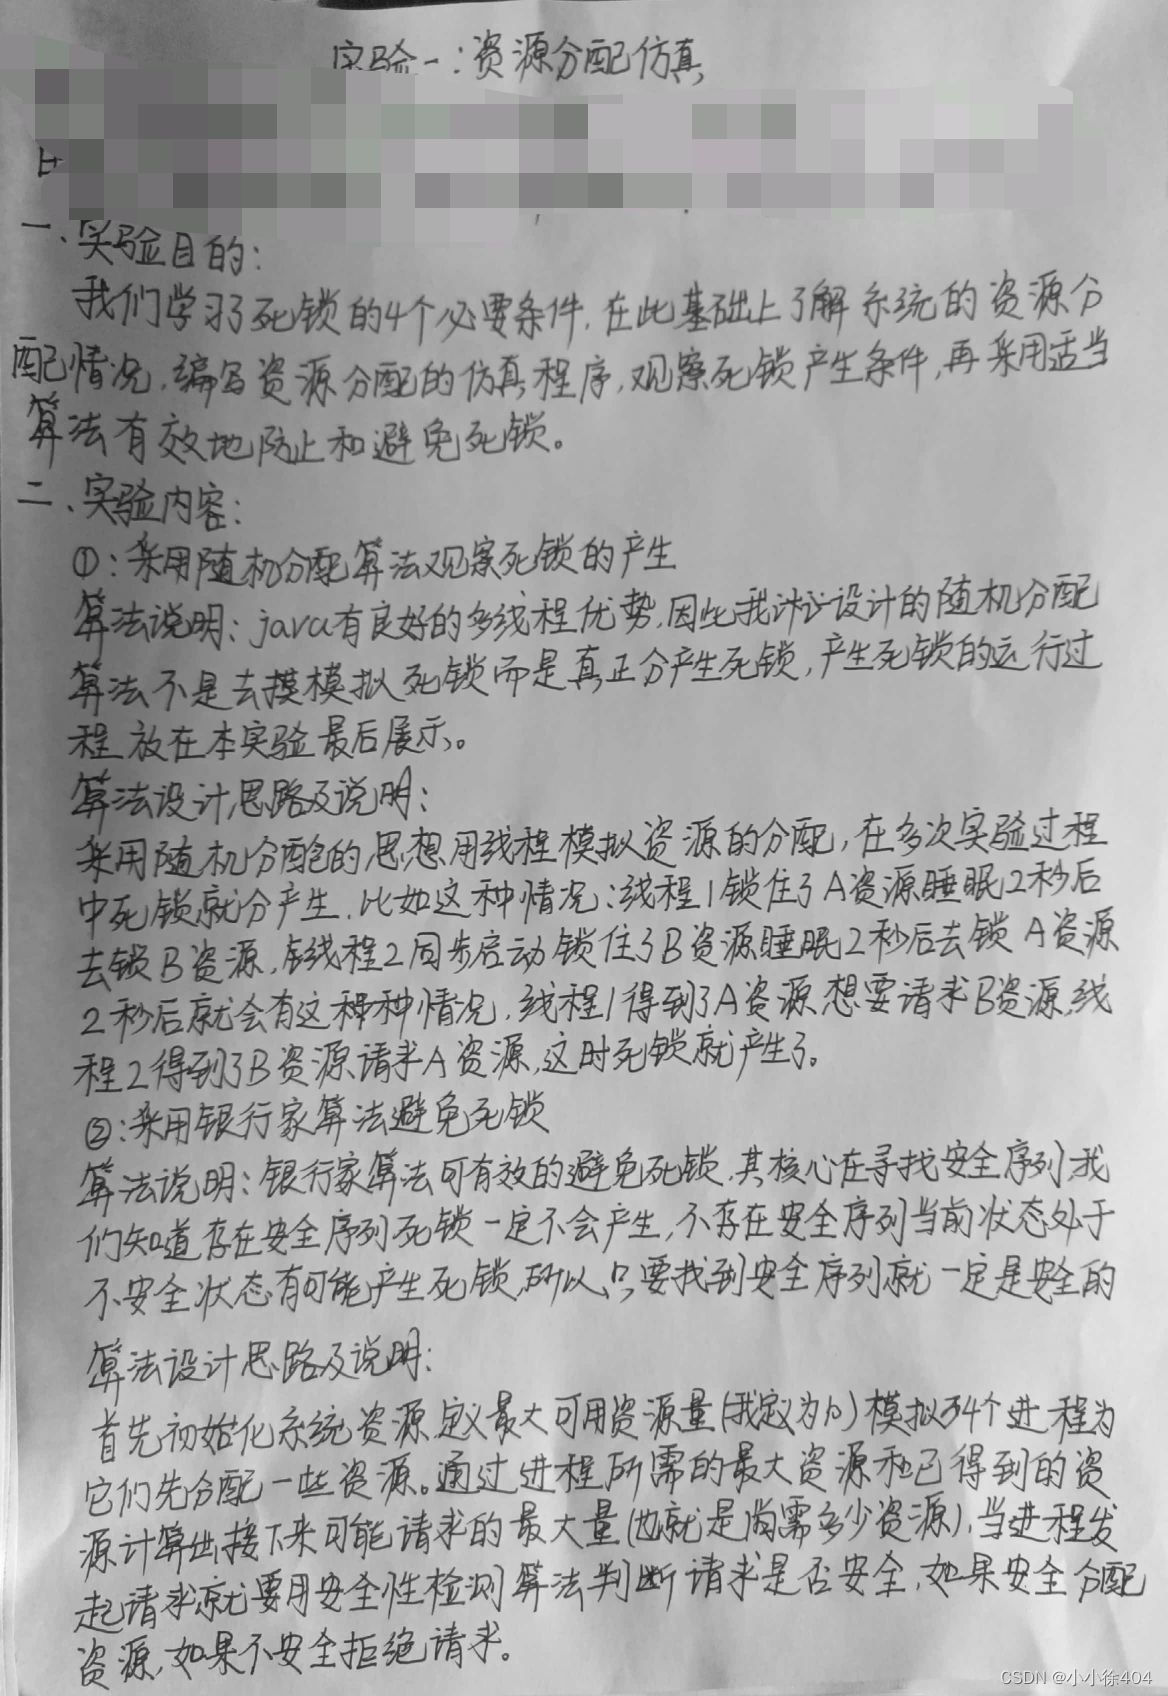 实验一:资源分配仿真
一、实验目的:
我们学习了死锁的4个必要条件,在此基础上了解系统的资源分
配情况,编写资源分配的仿真程序,观察死锁产生条件,再采用适当
算法有效地防止和避免死锁。
二、实验内容:
①:采用随机分配算法观察死锁的产生
算法说明:java有良好的多线程优势,因此我设计的随机分配
算法不是去模拟死锁而是真正分产生死锁,产生死锁的运行过
程放在本实验最后展示。
算法设计思路及说明:
采用随机分配的思想用线程模拟资源的分配,在多次实验过程
中死锁就分产生,比如这种情况:线程1锁住了A资源睡眠2秒后
去锁B资源,线程2同步启动锁住了B资源睡眠2秒后去锁A资源
2秒后就会有这种情况,线程1得到了A资源想要请求B资源,线
程2得到了B资源请求A资源,这时死锁就产生了。
②:采用银行家算法避免死锁
算法说明:银行家算法可有效的避免死锁,其核心在寻找安全序列,我
们知道存在安全序列死锁一定不会产生,不存在安全序列当前状态处于
不安全状态有可能产生死锁,所以,只要找到安全序列就一定是安全的
算法设计思路及说明:
首先初始化系统资源定义最大可用资源量(我定义为10)模拟4个进程为
它们先分配一些资源。通过进程所需的最大资源和已得到的资
源计算出接下来可能请求的最大量(也就是尚需多少资源),当进程发
起请求就要用安全性检测算法判断请求是否安全,如果安全分配
资源,如果不安全拒绝请求。
CSDN @小小徐404